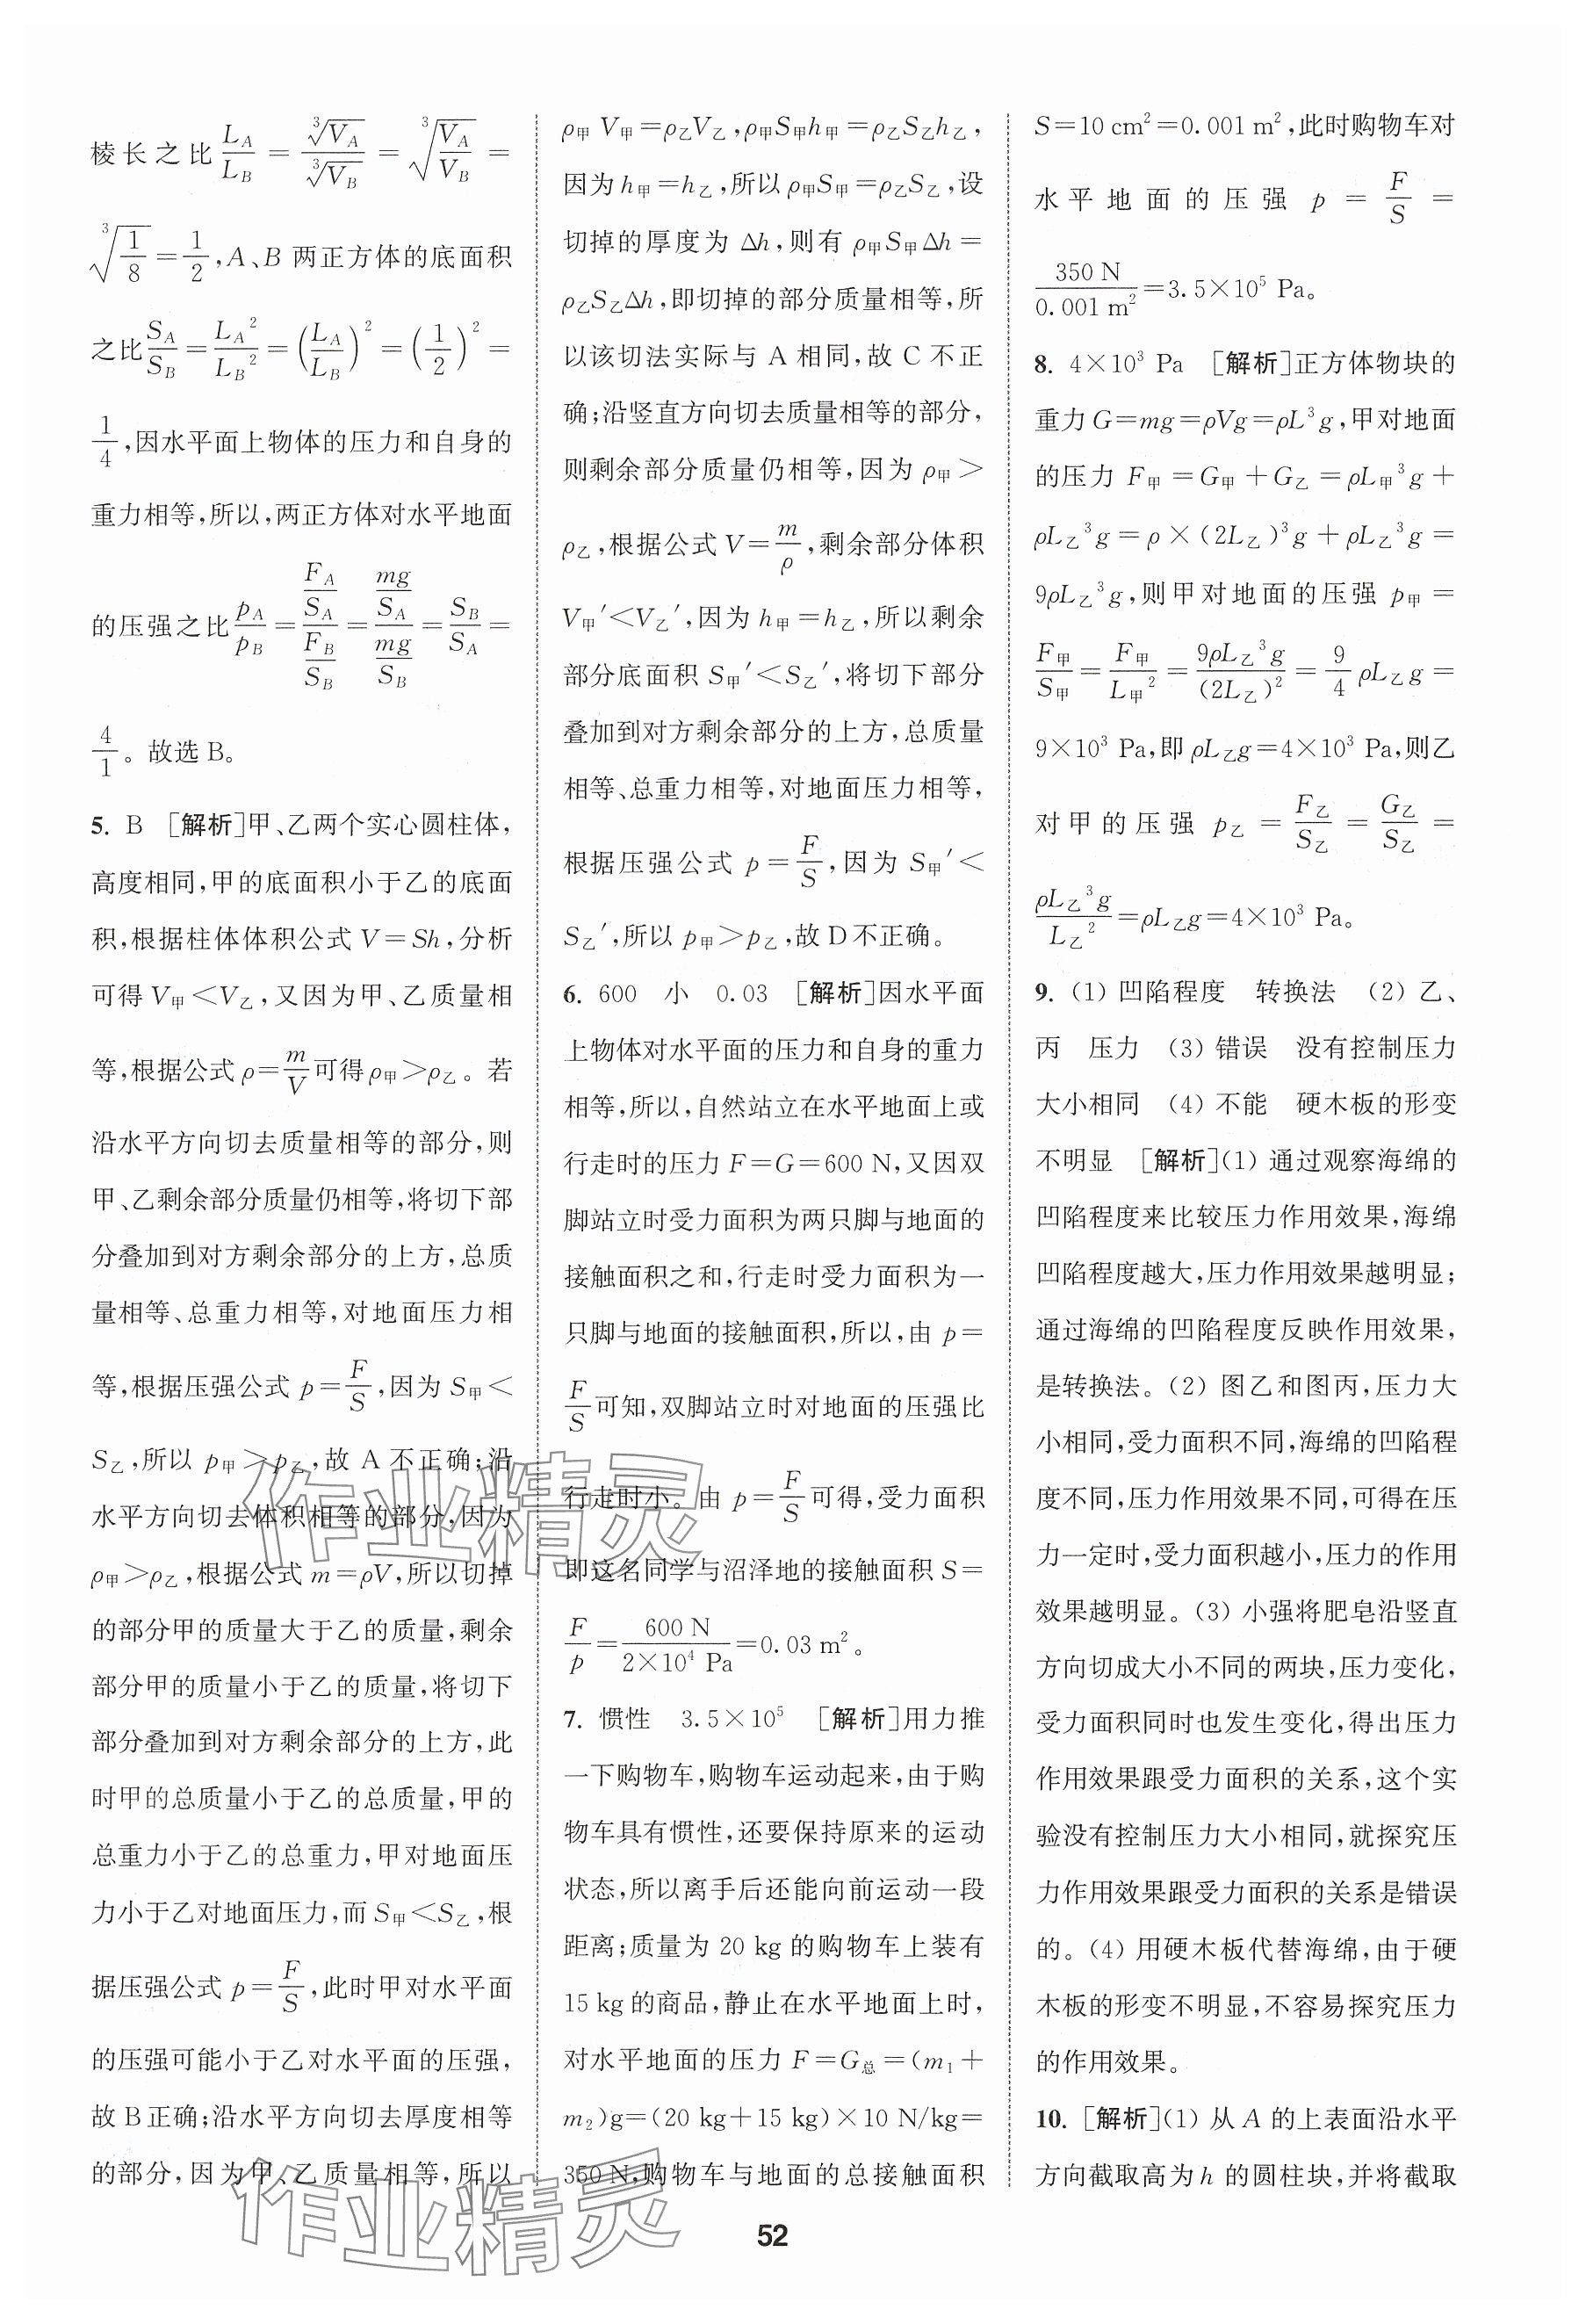 棱长之比 L_A/L_B = ∛V_A/∛V_B = ∛(V_A/V_B) =
∛(1/8) = 1/2，A、B 两正方体的底面积
之比 S_A/S_B = L_A²/L_B² = (L_A/L_B)² = (1/2)² =
1/4，因水平面上物体的压力和自身的
重力相等，所以，两正方体对水平地面
的压强之比 p_A/p_B = (F_A/S_A)/(F_B/S_B) = (mg/S_A)/(mg/S_B) = S_B/S_A =
4/1。故选 B。
5. B [解析]甲、乙两个实心圆柱体，
高度相同，甲的底面积小于乙的底面
积，根据柱体体积公式 V=Sh，分析
可得 V甲<V乙，又因为甲、乙质量相
等，根据公式 ρ=m/V 可得 ρ甲>ρ乙。若
沿水平方向切去质量相等的部分，则
甲、乙剩余部分质量仍相等，将切下部
分叠加到对方剩余部分的上方，总质
量相等、总重力相等，对地面压力相
等，根据压强公式 p=F/S，因为 S甲<
S乙，所以 p甲>p乙，故 A 不正确；沿
水平方向切去体积相等的部分，因为
ρ甲>ρ乙，根据公式 m=ρV，所以切掉
的部分甲的质量大于乙的质量，剩余
部分甲的质量小于乙的质量，将切下
部分叠加到对方剩余部分的上方，此
时甲的总质量小于乙的总质量，甲的
总重力小于乙的总重力，甲对地面压
力小于乙对地面压力，而 S甲<S乙，根
据压强公式 p=F/S，此时甲对水平面
的压强可能小于乙对水平面的压强，
故 B 正确；沿水平方向切去厚度相等
的部分，因为甲、乙质量相等，所以
ρ甲V甲=ρ乙V乙，ρ甲S甲h甲=ρ乙S乙h乙，
因为 h甲=h乙，所以 ρ甲S甲=ρ乙S乙，设
切掉的厚度为 Δh，则有 ρ甲S甲Δh=
ρ乙S乙Δh，即切掉的部分质量相等，所
以该切法实际与 A 相同，故 C 不正
确；沿竖直方向切去质量相等的部分，
则剩余部分质量仍相等，因为 ρ甲>
ρ乙，根据公式 V=m/ρ，剩余部分体积
V甲′<V乙′，因为 h甲=h乙，所以剩余
部分底面积 S甲′<S乙′，将切下部分
叠加到对方剩余部分的上方，总质量
相等、总重力相等，对地面压力相等，
根据压强公式 p=F/S，因为 S甲′<
S乙′，所以 p甲>p乙，故 D 不正确。
6. 600 小 0.03 [解析]因水平面
上物体对水平面的压力和自身的重力
相等，所以，自然站立在水平地面上或
行走时的压力 F=G=600 N，又因双
脚站立时受力面积为两只脚与地面的
接触面积之和，行走时受力面积为一
只脚与地面的接触面积，所以，由 p=
F/S 可知，双脚站立时对地面的压强比
行走时小。由 p=F/S 可得，受力面积
即这名同学与沼泽地的接触面积 S=
F/p = 600 N/(2×10⁴ Pa) = 0.03 m²。
7. 惯性 3.5×10⁵ [解析]用力推
一下购物车，购物车运动起来，由于购
物车具有惯性，还要保持原来的运动
状态，所以离手后还能向前运动一段
距离；质量为 20 kg 的购物车上装有
15 kg 的商品，静止在水平地面上时，
对水平地面的压力 F=G总=(m₁+
m₂)g=(20 kg+15 kg)×10 N/kg=
350 N，购物车与地面的总接触面积
S=10 cm²=0.001 m²，此时购物车对
水平地面的压强 p = F/S =
350 N/0.001 m² = 3.5×10⁵ Pa。
8. 4×10³ Pa [解析]正方体物块的
重力 G=mg=ρVg=ρL³g，甲对地面
的压力 F甲=G甲+G乙=ρL甲³g+
ρL乙³g=ρ×(2L乙)³g+ρL乙³g=
9ρL乙³g，则甲对地面的压强 p甲=
F甲/S甲 = F甲/L甲² = 9ρL乙³g/(2L乙)² = 9/4 ρL乙g=
9×10³ Pa，即 ρL乙g=4×10³ Pa，则乙
对甲的压强 p乙 = F乙/S乙 = G乙/S乙 =
ρL乙³g/L乙² = ρL乙g=4×10³ Pa。
9. (1) 凹陷程度 转换法 (2) 乙、
丙 压力 (3) 错误 没有控制压力
大小相同 (4) 不能 硬木板的形变
不明显 [解析](1) 通过观察海绵的
凹陷程度来比较压力作用效果，海绵
凹陷程度越大，压力作用效果越明显；
通过海绵的凹陷程度反映作用效果，
是转换法。(2) 图乙和图丙，压力大
小相同，受力面积不同，海绵的凹陷程
度不同，压力作用效果不同，可得在压
力一定时，受力面积越小，压力的作用
效果越明显。(3) 小强将肥皂沿竖直
方向切成大小不同的两块，压力变化，
受力面积同时也发生变化，得出压力
作用效果跟受力面积的关系，这个实
验没有控制压力大小相同，就探究压
力作用效果跟受力面积的关系是错误
的。(4) 用硬木板代替海绵，由于硬
木板的形变不明显，不容易探究压力
的作用效果。
10. [解析](1) 从 A 的上表面沿水平
方向截取高为 h 的圆柱块，并将截取
作业精灵
作业精灵
52